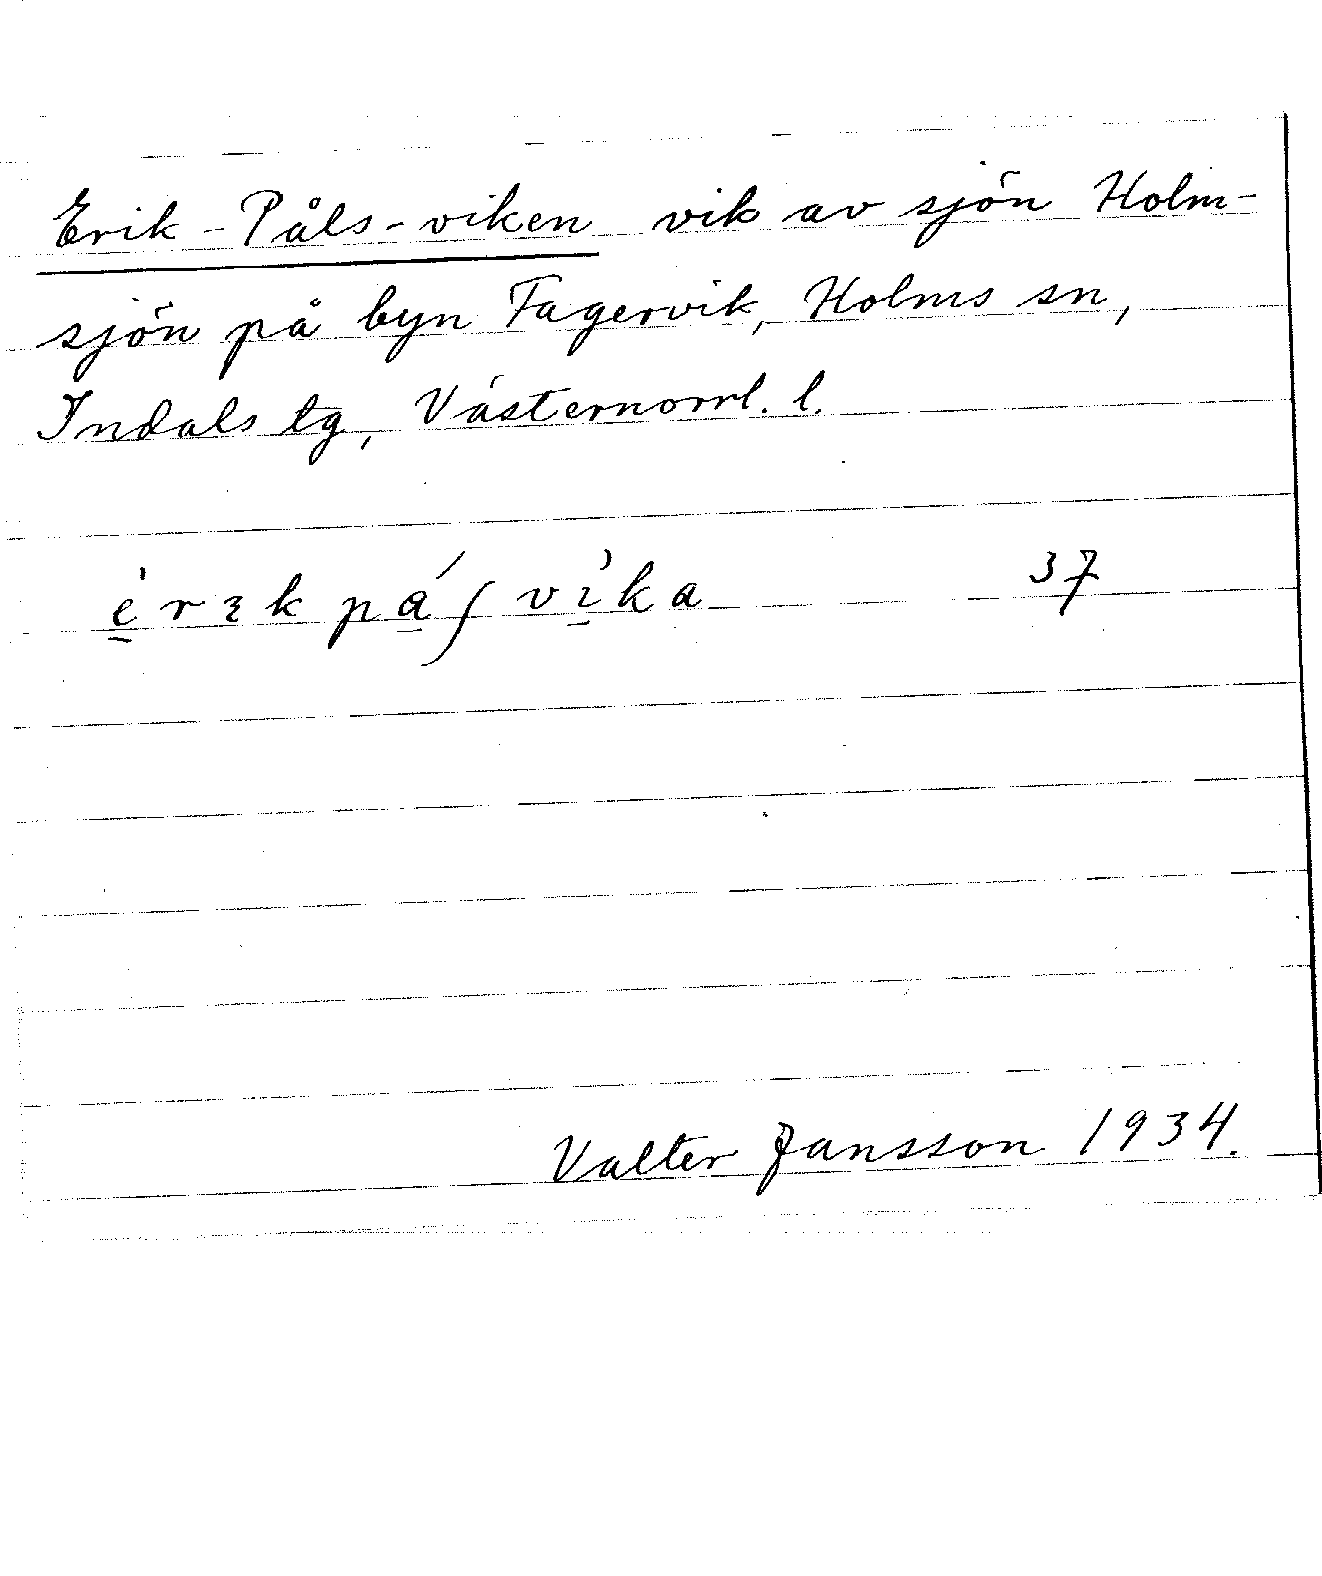 Erik-Påls-viken vik av sjön Holm-
sjön på byn Fagervik, Holms sn,
Indals tg, Västernorrl. l.
èrɩkpáʃvìka 37
Valter Jansson 1934.